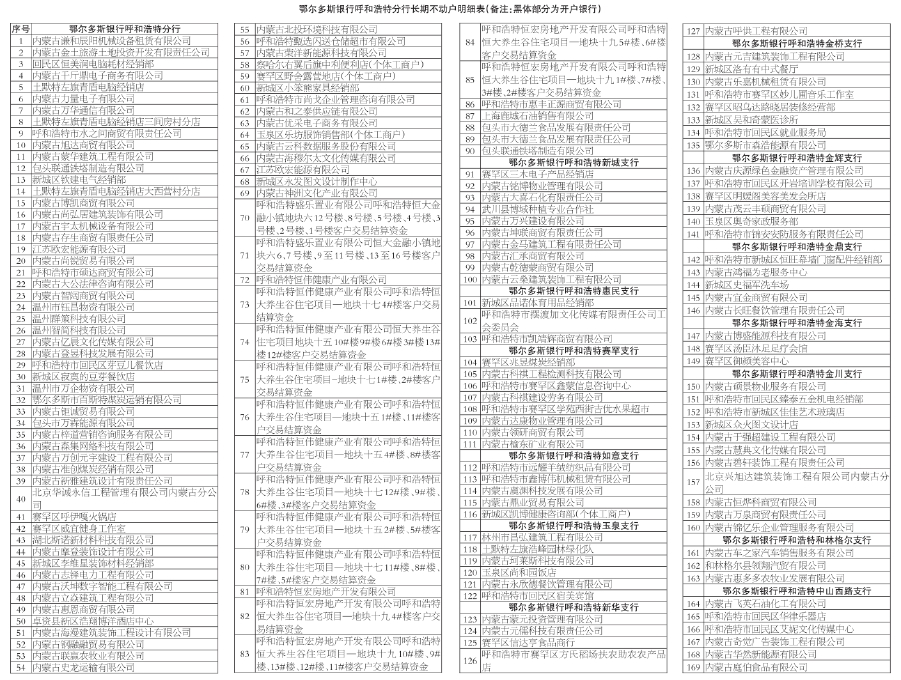 鄂尔多斯银行呼和浩特分行长期不动户明细表(备注:黑体部分为开户银行)
序号 鄂尔多斯银行呼和浩特分行
1 内蒙古谦和辰阳机械设备租赁有限公司
2 内蒙古金土旅游土地投资开发有限责任公司
3 回民区恒美润电脑耗材经销部
4 内蒙古千斤鼎电子商务有限公司
5 土默特左旗青盾电脑经销店
6 内蒙古力量电子有限公司
7 内蒙古万华通信有限公司
8 土默特左旗青盾电脑经销店三间房村分店
9 呼和浩特市水之间商贸有限责任公司
10 内蒙古旭达商贸有限公司
11 内蒙古蒙存建筑工程有限公司
12 包头联通铁塔制造有限公司
13 新城区钦建电气经销部
14 土默特左旗青盾电脑经销店大西营村分店
15 内蒙古博凯商贸有限公司
16 内蒙古尚弘居建筑装饰有限公司
17 内蒙古宇太机械设备有限公司
18 内蒙古存生商贸有限责任公司
19 江苏欧宏能源有限公司
20 内蒙古尚锐贸易有限公司
21 呼和浩特市硕达商贸有限公司
22 内蒙古大公法律咨询有限公司
23 内蒙古智润商贸有限公司
24 温州市钰昌物资有限公司
25 温州群策科技有限公司
26 温州智简科技有限公司
27 内蒙古亿晨文化传媒有限公司
28 内蒙古益昱科技发展有限公司
29 呼和浩特市回民区芽豆儿餐饮店
30 新城区寂寞的豆芽餐饮店
31 温州市万企物资有限公司
32 鄂尔多斯市百斯特煤炭运销有限公司
33 内蒙古钜诚贸易有限公司
34 包头市万森能源有限公司
35 内蒙古梓道营销咨询服务有限公司
36 内蒙古嘉集网络科技有限公司
37 内蒙古万创元宇建设工程有限公司
38 内蒙古准创煤炭经销有限公司
39 内蒙古新雅建筑设计有限责任公司
40 北京华诚永信工程管理有限公司内蒙古分公
司
41 赛罕区呼伊嘎火锅店
42 赛罕区威宣健身工作室
43 湖北斯诺新材料科技有限公司
44 内蒙古摩登装饰设计有限公司
45 新城区李维星装饰材料经销部
46 内蒙古志祥电力工程有限公司
47 内蒙古沃坤数字智能工程有限公司
48 内蒙古立焱建筑工程有限公司
49 内蒙古惠恩商贸有限公司
50 卓资县新区浩翔博洋酒店中心
51 内蒙古海漫建筑装饰工程设计有限公司
52 内蒙古钢融融贸易有限公司
53 内蒙古联赢农牧业有限公司
54 内蒙古史龙运输有限公司
55 内蒙古北投环境科技有限公司
56 呼和浩特勤选闪送仓储超市有限公司
57 内蒙古荣泽新能源科技有限公司
58 察哈尔右翼后旗中利便利店(个体工商户)
59 赛罕区野盒露营地店(个体工商户)
60 新城区小笨熊家具经销部
61 呼和浩特市尚龙企业管理咨询有限公司
62 内蒙古和之泰供应链有限公司
63 内蒙古优采电子商务有限公司
64 玉泉区乐坊服饰销售部(个体工商户)
65 内蒙古云科数据服务股份有限公司
66 内蒙古海穆尔太文化传媒有限公司
67 江苏欧宏能源有限公司
68 新城区永发图文设计制作中心
69 内蒙古神洲文化产业有限公司
70 呼和浩特盛乐置业有限公司呼和浩特恒大金
融小镇地块六12号楼、8号楼、5号楼、4号楼、3
号楼、2号楼、1号楼客户交易结算资金
71 呼和浩特盛乐置业有限公司恒大金融小镇地
块六6、7号楼,9至11号楼,13至16号楼客户
交易结算资金
72 呼和浩特恒伟健康产业有限公司
73 呼和浩特恒伟健康产业有限公司呼和浩特恒
大养生谷住宅项目一地块十七4#楼客户交易
结算资金
74 呼和浩特恒伟健康产业有限公司恒大养生谷
地块十五10#楼9#楼6#楼3#楼13#
楼12#楼客户交易结算资金
75 呼和浩特恒伟健康产业有限公司呼和浩特恒
大养生谷住宅项目一地块十七1#楼、2#楼客户
交易结算资金
76 呼和浩特恒伟健康产业有限公司呼和浩特恒
大养生谷住宅项目一地块十五1#楼、11#楼客
户交易结算资金
77 呼和浩特恒伟健康产业有限公司呼和浩特恒
大养生谷住宅项目一地块十五4#楼、8#楼客
户交易结算资金
78 呼和浩特恒伟健康产业有限公司呼和浩特恒
大养生谷住宅项目一地块十七12#楼、9#楼、
6#楼、3#楼客户交易结算资金
79 呼和浩特恒伟健康产业有限公司呼和浩特恒
大养生谷住宅项目一地块十五2#楼、5#楼客
户交易结算资金
80 呼和浩特恒伟健康产业有限公司呼和浩特恒
大养生谷住宅项目一地块十七11#楼、8#楼、
7#楼、5#楼客户交易结算资金
81 呼和浩特恒宏房地产开发有限公司
82 呼和浩特恒宏房地产开发有限公司呼和浩特
恒大养生谷住宅项目一地块十九4#楼客户交
易结算资金
83 呼和浩特恒宏房地产开发有限公司呼和浩特
恒大养生谷住宅项目一地块十九10#楼、9#
楼、13#楼、12#楼、11#楼客户交易结算资金
84 呼和浩特恒宏房地产开发有限公司呼和浩特
恒大养生谷住宅项目一地块十九5#楼、6#楼
客户交易结算资金
85 呼和浩特恒宏房地产开发有限公司呼和浩特
恒大养生谷住宅项目一地块十九1#楼、7#楼、
3#楼、2#楼客户交易结算资金
86 呼和浩特市惠丰正源商贸有限公司
87 上海鹿城石油销售有限公司
88 包头市大德兰食品发展有限责任公司
89 包头市大德兰食品发展有限责任公司
90 包头联通铁塔制造有限公司
鄂尔多斯银行呼和浩特新城支行
91 赛罕区三木电子产品经销店
92 内蒙古铭博物业管理有限公司
93 内蒙古大嘉石化有限责任公司
94 武川县博域种植专业合作社
95 内蒙古万兴建设有限公司
96 内蒙古坤联商贸有限责任公司
97 内蒙古金马建筑工程有限责任公司
98 内蒙古汇承商贸有限公司
99 内蒙古乾德蒙商贸有限公司
100 内蒙古云燊建筑装饰工程有限公司
鄂尔多斯银行呼和浩特惠民支行
101 新城区品诺体育用品经销部
102 呼和浩特市摆渡加文化传媒有限责任公司工
会委员会
103 呼和浩特市凯靖辉商贸有限公司
鄂尔多斯银行呼和浩特赛罕支行
104 赛罕区兆昱煤炭经销部
105 内蒙古科祺工程检测科技有限公司
106 呼和浩特市赛罕区鑫蒙信息咨询中心
107 内蒙古科祺建设劳务有限公司
108 呼和浩特市赛罕区学苑西街吉优水果超市
109 内蒙古达康物业管理有限公司
110 内蒙古领研商贸有限公司
111 内蒙古榆东矿业有限公司
鄂尔多斯银行呼和浩特如意支行
112 呼和浩特市远耀羊绒纺织品有限公司
113 呼和浩特市鑫博伟机械租赁有限公司
114 内蒙古瀛洲科技发展有限公司
115 内蒙古雅业贸易有限公司
116 新城区凯博健康咨询部(个体工商户)
鄂尔多斯银行呼和浩特玉泉支行
117 林州市昌弘建筑工程有限公司
118 土默特左旗浩峰园林绿化队
119 内蒙古珂莱斯科技有限公司
120 玉泉区尚和园饭店
121 内蒙古永欣德餐饮管理有限公司
122 呼和浩特市回民区宿美宾馆
鄂尔多斯银行呼和浩特新华支行
123 内蒙古蒙元投资管理有限公司
124 内蒙古元儒科技有限责任公司
125 赛罕区信达罕食品商行
126 呼和浩特市赛罕区方氏稻场扶农助农农产品
店
127 内蒙古呼供工程有限公司
鄂尔多斯银行呼和浩特金桥支行
128 内蒙古元吉建筑装饰工程有限公司
129 新城区洛有有中式餐厅
130 内蒙古乐嘉机械租赁有限公司
131 呼和浩特市赛罕区妙儿圃音乐工作室
132 赛罕区昭乌达路晓居装修经营部
133 新城区吴和奇蒙医诊所
134 呼和浩特市回民区就业服务局
135 鄂尔多斯市森浩能源有限公司
鄂尔多斯银行呼和浩特金辉支行
136 内蒙古庆源绿色金融资产管理有限公司
137 呼和浩特市回民区开岩培训学校有限公司
138 赛罕区明媛阁美容美发会所店
139 内蒙古茂云丰硕商贸有限公司
140 玉泉区奥奇家政服务部
141 呼和浩特市锦安安防服务有限责任公司
鄂尔多斯银行呼和浩特金鼎支行
142 呼和浩特市新城区恒旺幕墙门窗配件经销部
143 内蒙古鸿福为老服务中心
144 新城区史福军洗车场
145 内蒙古宜金商贸有限公司
146 内蒙古长旺餐饮管理有限责任公司
鄂尔多斯银行呼和浩特金海支行
147 内蒙古博盛能源科技有限公司
148 赛罕区汤臣沐足足疗会馆
149 赛罕区御颜美容中心
鄂尔多斯银行呼和浩特金川支行
150 内蒙古硕景物业服务有限公司
151 呼和浩特市回民区臻泰五金机电经销部
152 呼和浩特市新城区佳佳艺术玻璃店
153 新城区众火图文设计店
154 内蒙古于强超建设工程有限公司
155 内蒙古慧典文化传媒有限公司
156 内蒙古碧轩装饰工程有限责任公司
157 北京兴旭达建筑装饰工程有限公司内蒙古分
公司
158 内蒙古恒烨科商贸有限公司
159 内蒙古万泉商贸有限责任公司
160 内蒙古锦亿乐企业管理服务有限公司
鄂尔多斯银行呼和浩特和林格尔支行
161 内蒙古车之家汽车销售服务有限公司
162 和林格尔县领翔汽贸有限公司
163 内蒙古惠多多农牧业发展有限公司
鄂尔多斯银行呼和浩特中山西路支行
164 内蒙古飞英石油化工有限公司
165 呼和浩特市回民区华律乐器店
166 呼和浩特市回民区艾妮文化传媒中心
167 内蒙古奇观广告装饰工程有限公司
168 内蒙古华然新能源有限公司
169 内蒙古庭伯食品有限公司